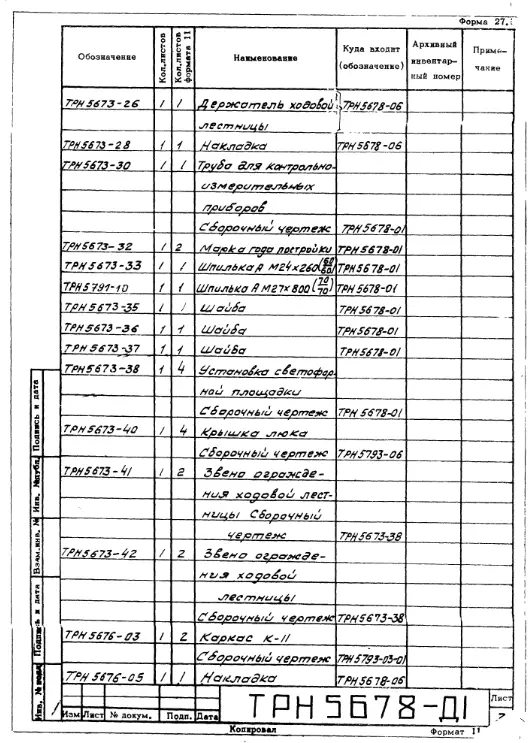 Форма 27.
Обозначение Кол.листов Кол.листов формата 11 Наименование Куда входит (обозначение) Архивный инвентарный номер Примечание
ТРН5673-26 1 1 Держатель ходовой ТРН5678-06
лестницы
ТРН5673-28 1 1 Накладка ТРН5678-06
ТРН5673-30 1 1 Труба для контрольно-
измерительных
приборов
Сборочный чертеж ТРН5678-01
ТРН5673-32 1 2 Марка года постройки ТРН5678-01
ТРН5673-33 1 1 Шпилька А М24×260(60/60) ТРН5678-01
ТРН5791-10 1 1 Шпилька А М27×800(70/70) ТРН5678-01
ТРН5673-35 1 1 Шайба ТРН5678-01
ТРН5673-36 1 1 Шайба ТРН5678-01
ТРН5673-37 1 1 Шайба ТРН5678-01
ТРН5673-38 1 4 Установка светофор-
ной площадки
Сборочный чертеж ТРН5678-01
ТРН5673-40 1 4 Крышка люка
Сборочный чертеж ТРН5793-06
ТРН5673-41 1 2 Звено огражде-
ния ходовой лест-
ницы Сборочный
чертеж ТРН5673-38
ТРН5673-42 1 2 Звено огражде-
ния ходовой
лестницы
Сборочный чертеж ТРН5673-38
ТРН5676-03 1 2 Каркас К-11
Сборочный чертеж ТРН5793-03-01
ТРН5676-05 1 1 Накладка ТРН5678-06
Подпись и дата
Взам.инв. №
Подпись и дата
Изм Лист № докум. Подп. Дата
ТРН5678-Д1
Лист
7
Копировал Формат 11